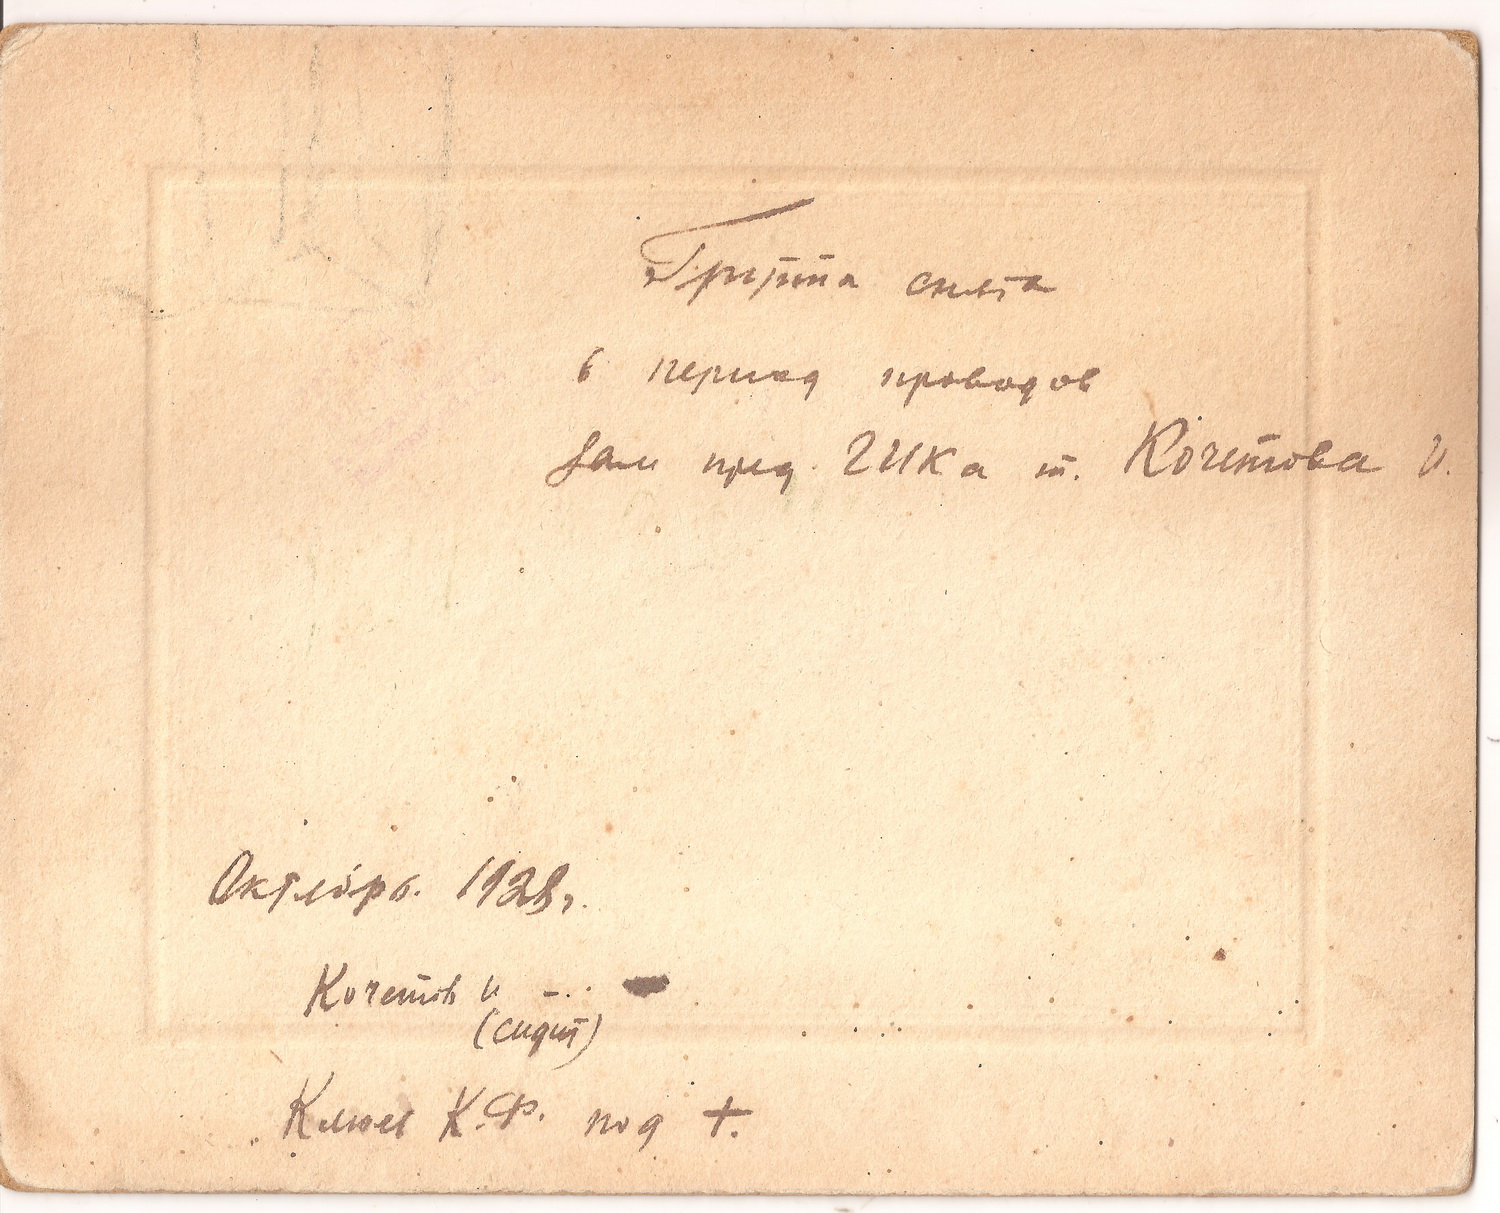 Группа снята
в период проводов
зам пред. ГИКа т. Кочетова И.
Октябрь. 1928г.
Кочетов И - ..
(сидит)
Клюев К.Ф. под +.